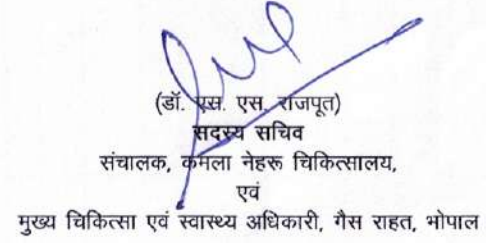 (डॉ. एस. एस. राजपूत)
सदस्य सचिव
संचालक, कमला नेहरू चिकित्सालय,
एवं
मुख्य चिकित्सा एवं स्वास्थ्य अधिकारी, गैस राहत, भोपाल